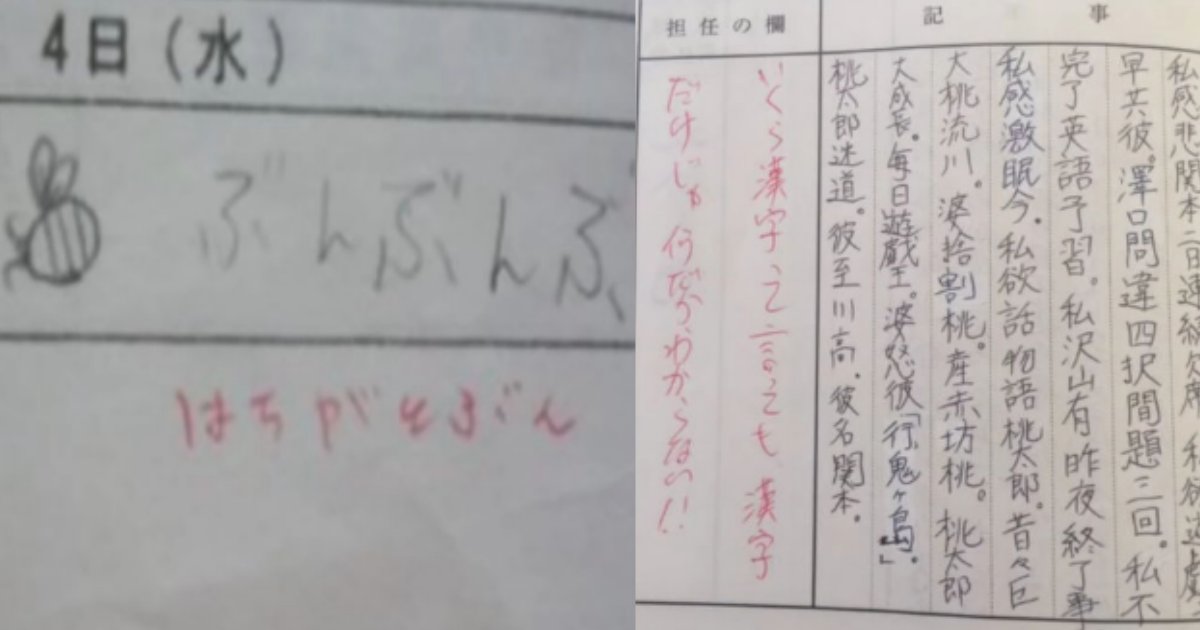 4日（水）
ぶんぶんぶ
はちがとぶぶん
記事
早共彼。澤口問違四択問題二回。私不
完了英語予習。私沢山有昨夜終了事
私感激眠今。私欲話物語桃太郎。昔々巨
大桃流川。婆拾割桃。産赤坊桃。桃太郎
大成長。毎日遊戯王。婆怒彼「行鬼ヶ島。」
桃太郎迷道。彼至川高。彼名関本。
担任の欄
いくら漢字って言っても、漢字
だけじゃ何だかわからない!!